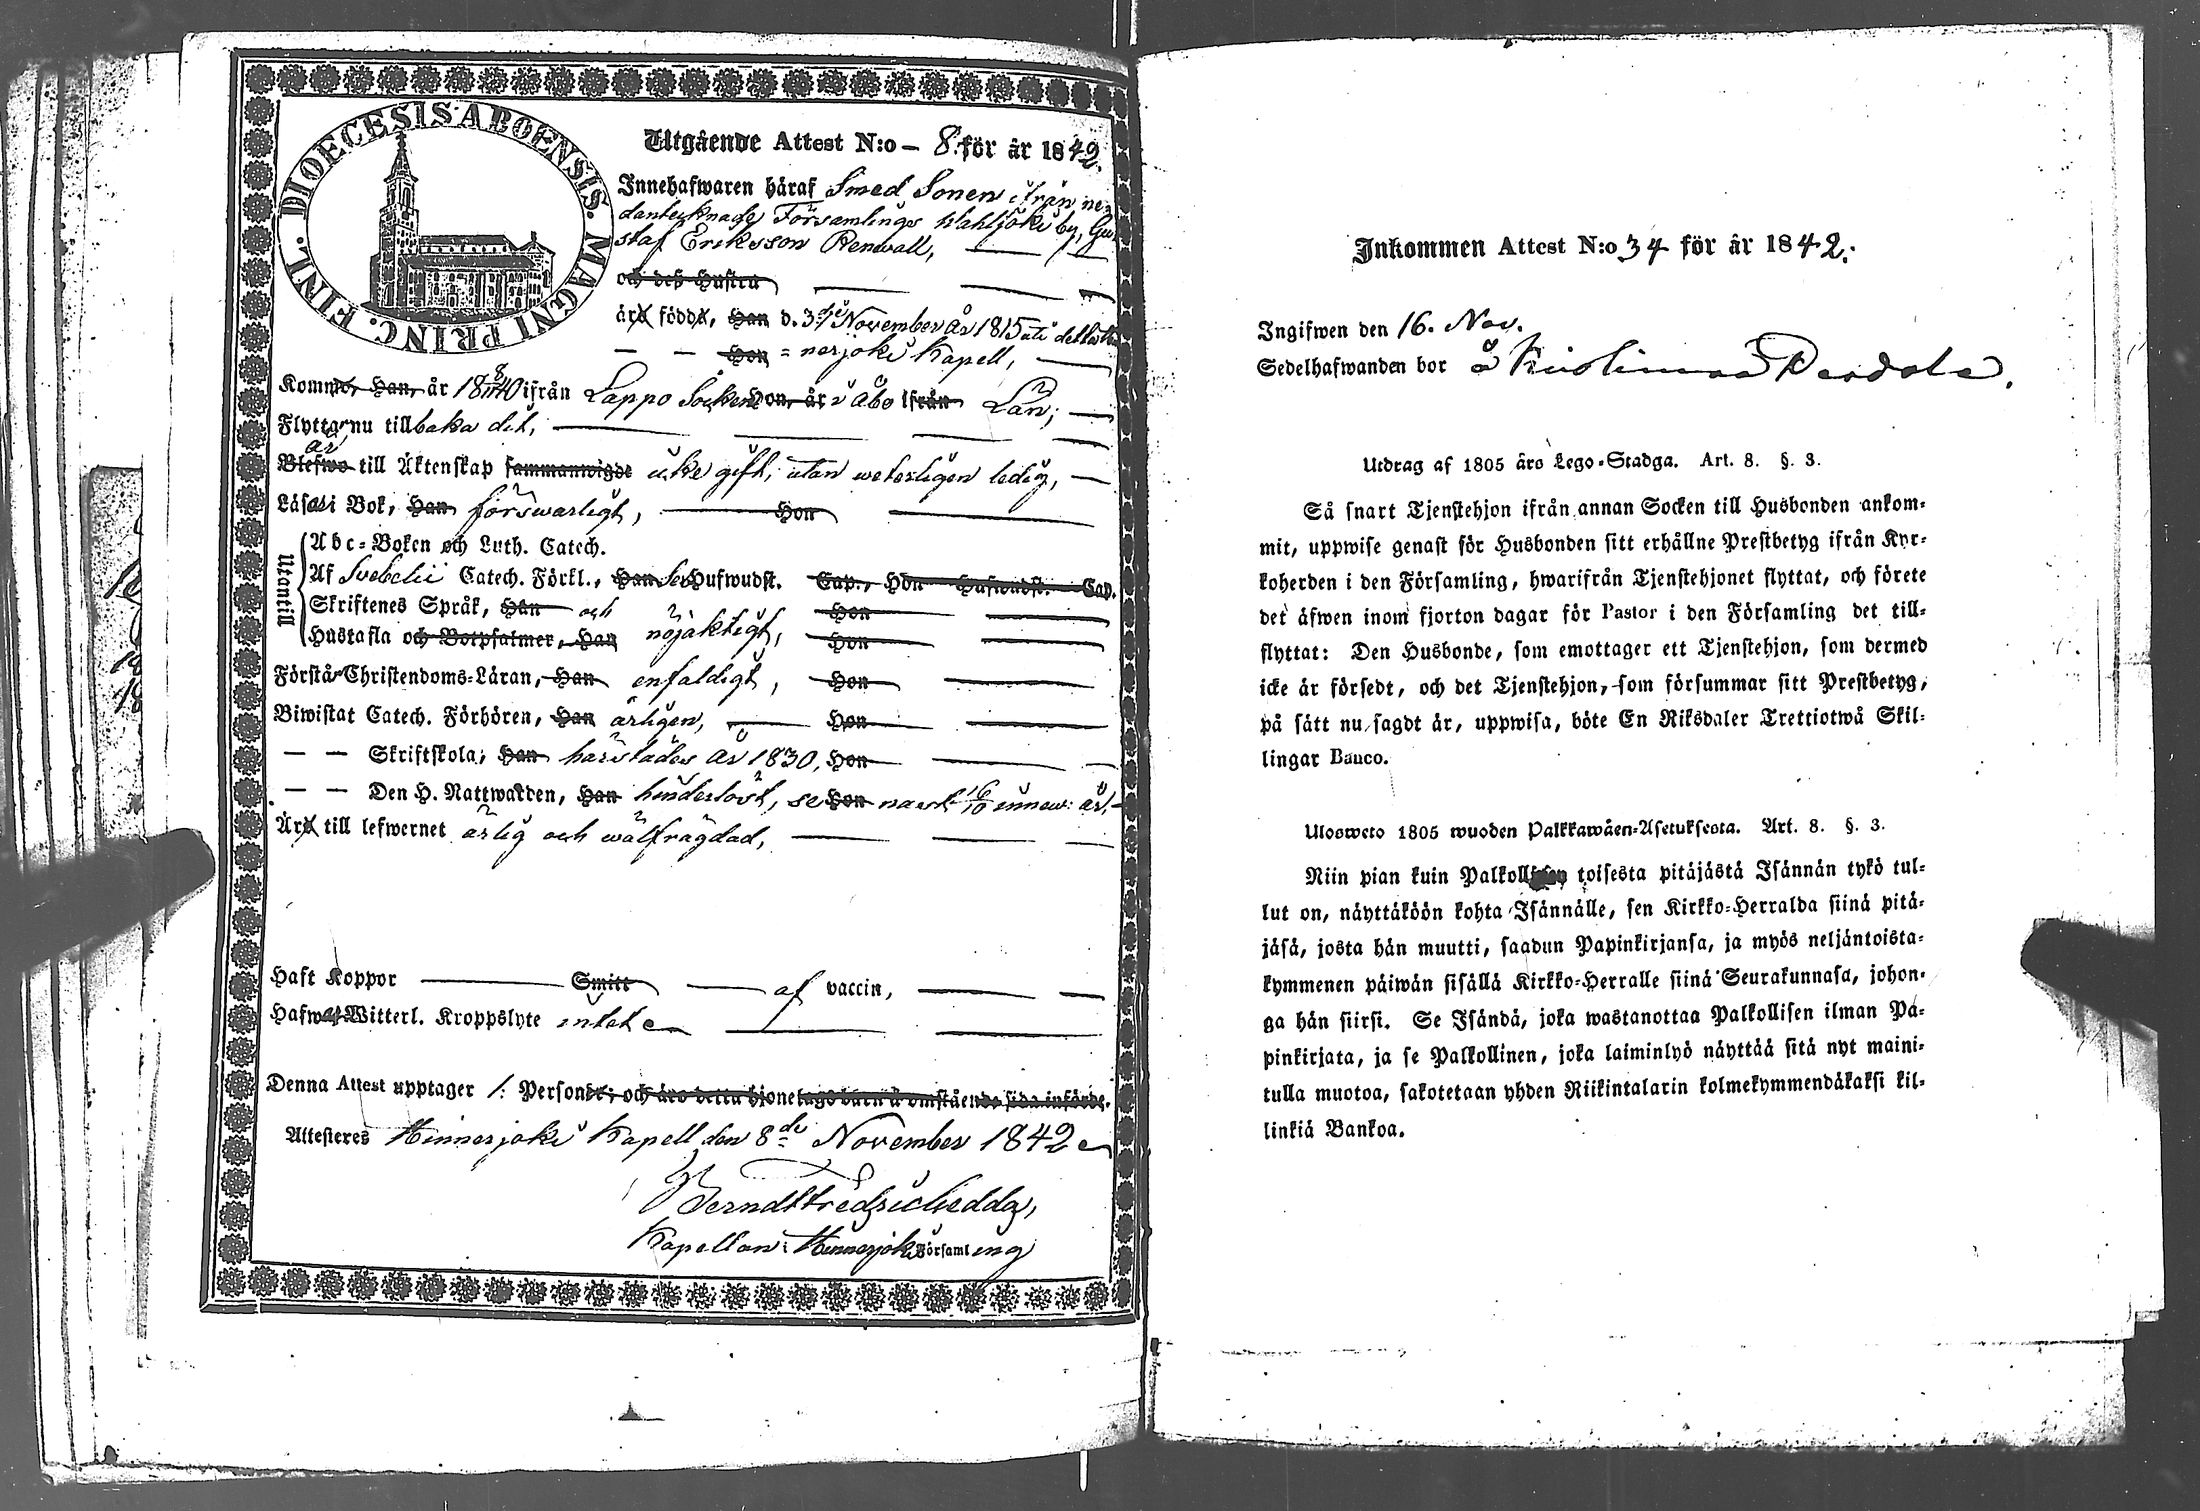 DIOECESIS ABOENSIS. MAGNI PRINC. FINL.
Utgående Attest N:o – 8. för år 1842.
Innehafwaren häraf Smed Sonen ifrån ne-
dantecknade Församlings by, Gu-
staf Eriksson Renwall,
och des Hustru
är född, Han d. November år 1815 uti detta
Hon = nerjoki Kapell,
Komm Han, år 1840 ifrån Lappo Socken Hon, år i Åbo ifrån Län;
Flyttar nu tillbaka dit,
är
Blefwo till Äktenskap sammanwigde icke gift, utan weterligen ledig,
Läser i Bok, Han förswarligt, Hon
Utantill
Abc-Boken och Luth. Catech.
Af Svebelii Catech. Förkl., Han Hufwudst. Cap., Hon Hufwudst. Cap.
Skriftenes Språk, Han och Hon
Hustafla och Botpsalmer, Han nöjaktigt, Hon
Förstår Christendoms-Läran, Han enfaldigt, Hon
Biwistat Catech. Förhören, Han årligen, Hon
— — Skriftskola, Han härstädes år 1830, Hon
— — Den H. Nattwarden, Han hinderlöst, Hon 16/10 innew: år,
Är till lefwernet ärlig och wälfrägdad,
Haft Koppor Smitt af vaccin,
Hafwer Witterl. Kroppslyte intet
Denna Attest upptager 1. Person; och äro detta hjonelags barn å omstående sida införde.
Attesteres Hinnerjoki Kapell den 8de November 1842
Kapellan i Hinnerjoki Församling
Inkommen Attest N:o 34 för år 1842.
Ingifwen den 16. Nov.
Sedelhafwanden bor å
Utdrag af 1805 års Lego-Stadga. Art. 8. §. 3.
Så snart Tjenstehjon ifrån annan Socken till Husbonden ankom-
mit, uppwise genast för Husbonden sitt erhållne Prestbetyg ifrån Kyr-
koherden i den Församling, hwarifrån Tjenstehjonet flyttat, och förete
det äfwen inom fjorton dagar för Pastor i den Församling det till-
flyttat: Den Husbonde, som emottager ett Tjenstehjon, som dermed
icke är försedt, och det Tjenstehjon, som försummar sitt Prestbetyg,
på sätt nu sagdt är, uppwisa, böte En Riksdaler Trettiotwå Skil-
lingar Banco.
Ulosweto 1805 wuoden Palkkawäen-Asetuksesta. Art. 8. §. 3.
Niin pian kuin Palkollisen toisesta pitäjästä Isännän tykö tul-
lut on, näyttäköön kohta Isännälle, sen Kirkko-Herralda siinä pitä-
jäsä, josta hän muutti, saadun Papinkirjansa, ja myös neljäntoista-
kymmenen päiwän sisällä Kirkko-Herralle siinä Seurakunnasa, johon-
ga hän siirsi. Se Isändä, joka wastanottaa Palkollisen ilman Pa-
pinkirjata, ja se Palkollinen, joka laiminlyö näyttää sitä nyt maini-
tulla muotoa, sakotetaan yhden Riikintalarin kolmekymmendäkaksi kil-
linkiä Bankoa.